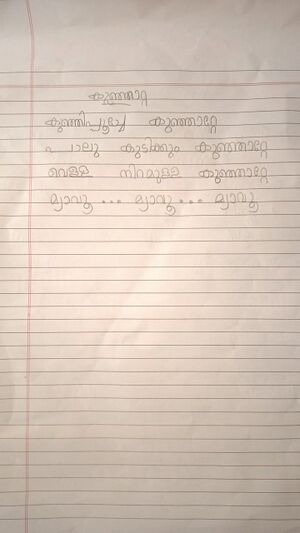 കുഞ്ഞാറ്റ
കുഞ്ഞിപൂച്ചേ കുഞ്ഞാറ്റേ
പാലു കുടിക്കും കുഞ്ഞാറ്റേ
വെള്ള നിറമുള്ള കുഞ്ഞാറ്റേ
മ്യാവൂ ... മ്യാവൂ ... മ്യാവൂ